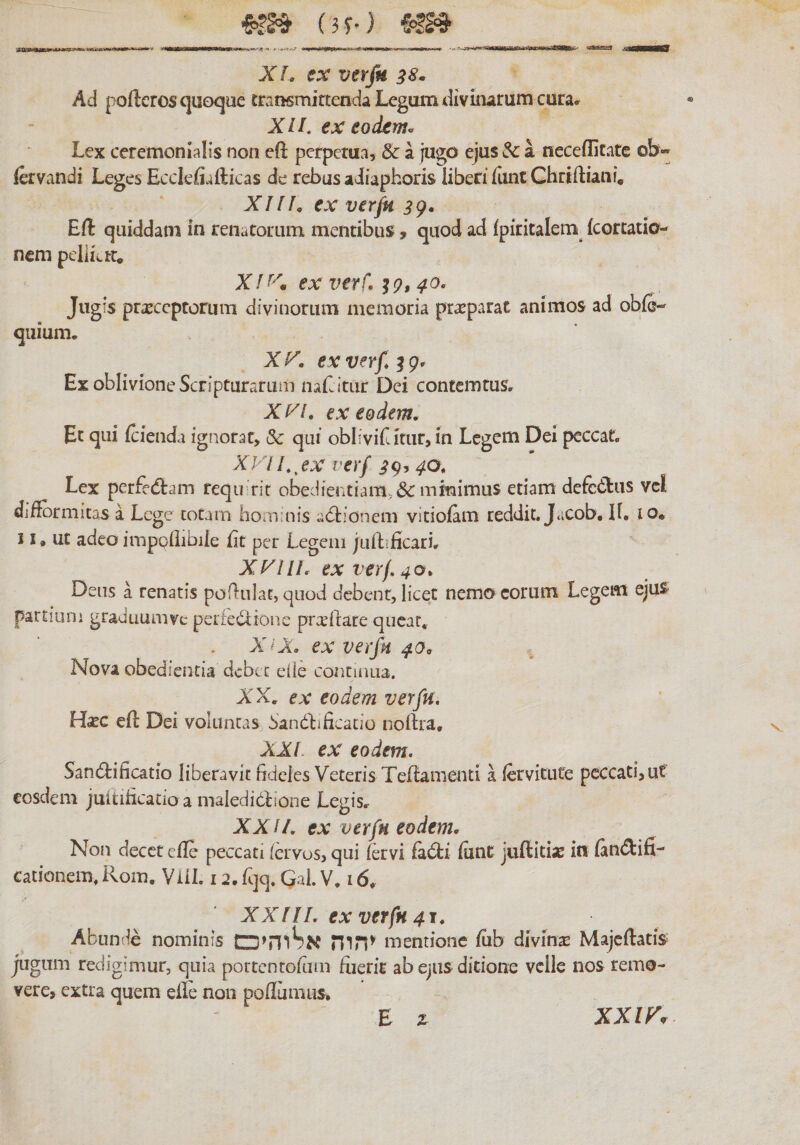 (35.)
XI. ex verſu 38.
Ad poſteros quoque transmittenda Legum divinarum cura.
XII. ex eodem.
Lex ceremonialis non eſt perpetua, & à jugo ejus & à neceſſitate ob-
ſervandi Leges Eccleſiaſticas de rebus adiaphoris liberi ſunt Chriſtiani.
XIII. ex verſu 39.
Eſt quiddam in renatorum mentibus, quod ad ſpiritalem ſcortatio-
nem pellicit.
XIV. ex verſ. 39, 40.
Jugis præceptorum divinorum memoria præparat animos ad obſe-
quium.
XV. ex verſ. 39.
Ex oblivione Scripturarum naſcitur Dei contemtus.
XVI. ex eodem.
Et qui ſcienda ignorat, & qui obliviſcitur, in Legem Dei peccat.
XVII. ex verſ 39, 40.
Lex perfectam requirit obedientiam, & minimus etiam defectus vel
difformitas à Lege totam hominis actionem vitioſam reddit. Jacob. II. 10.
11, ut adeo impoſſibile ſit per Legem juſtificari.
XVIII. ex verſ. 40.
Deus à renatis poſtulat, quod debent, licet nemo eorum Legem ejus
partium graduumve perfectione præſtare queat.
XIX. ex verſu 40.
Nova obedientia debet eſſe continua.
XX. ex eodem verſu.
Hæc eſt Dei voluntas Sanctificatio noſtra.
XXI. ex eodem.
Sanctificatio liberavit fideles Veteris Teſtamenti à ſervitute peccati, ut
eosdem juſtificatio a maledictione Legis.
XXII. ex verſu eodem.
Non decet eſſe peccati ſervos, qui ſervi facti ſunt juſtitiæ in ſanctifi-
cationem, Rom. VIII. 12. ſqq. Gal. V. 16.
XXIII. ex verſu 41.
Abundè nominis יהוה אלוהיכם mentione ſub divinæ Majeſtatis
jugum redigimur, quia portentoſum fuerit ab ejus ditione velle nos remo-
vere, extra quem eſſe non poſſumus.
E 2 XXIV.